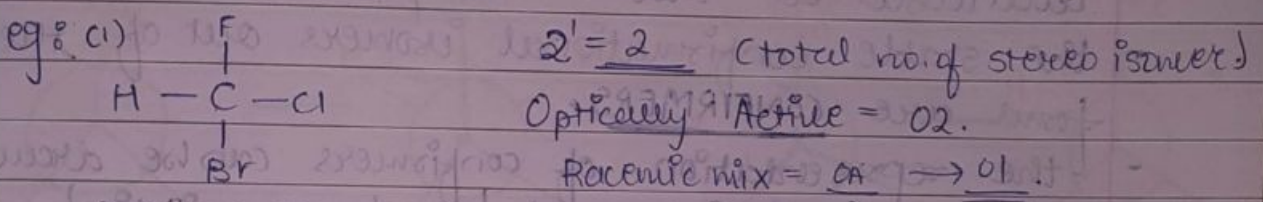 eg: (1) F 2¹ = 2 (total no. of stereo isomer)
H – C – Cl
Optically Active = 02.
Br Racemic mix = OA → 01.